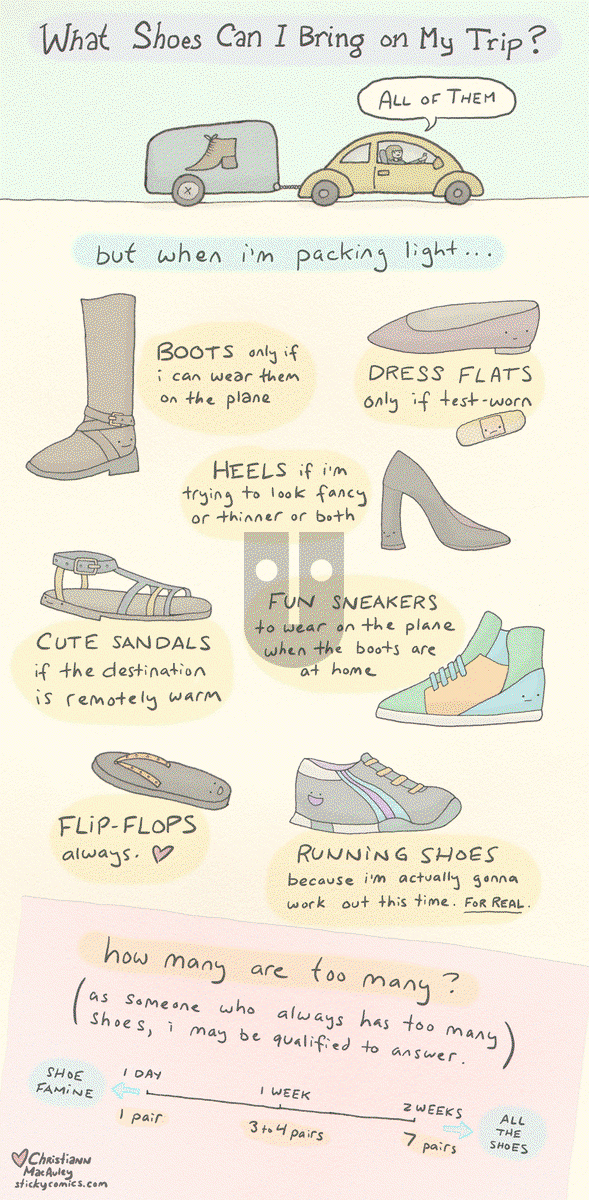 What Shoes Can I Bring on My Trip?
ALL OF THEM
but when i'm packing light...
BOOTS only if
i can wear them
on the plane
DRESS FLATS
only if test-worn
HEELS if i'm
trying to look fancy
or thinner or both
CUTE SANDALS
if the destination
is remotely warm
FUN SNEAKERS
to wear on the plane
when the boots are
at home
FLIP-FLOPS
always.
RUNNING SHOES
because i'm actually gonna
work out this time. FOR REAL.
how many are too many?
(as someone who always has too many
shoes, i may be qualified to answer.)
SHOE
FAMINE
1 DAY
1 pair
1 WEEK
3 to 4 pairs
2 WEEKS
7 pairs
ALL
THE
SHOES
CHRISTIANN
MACAULEY
stickycomics.com